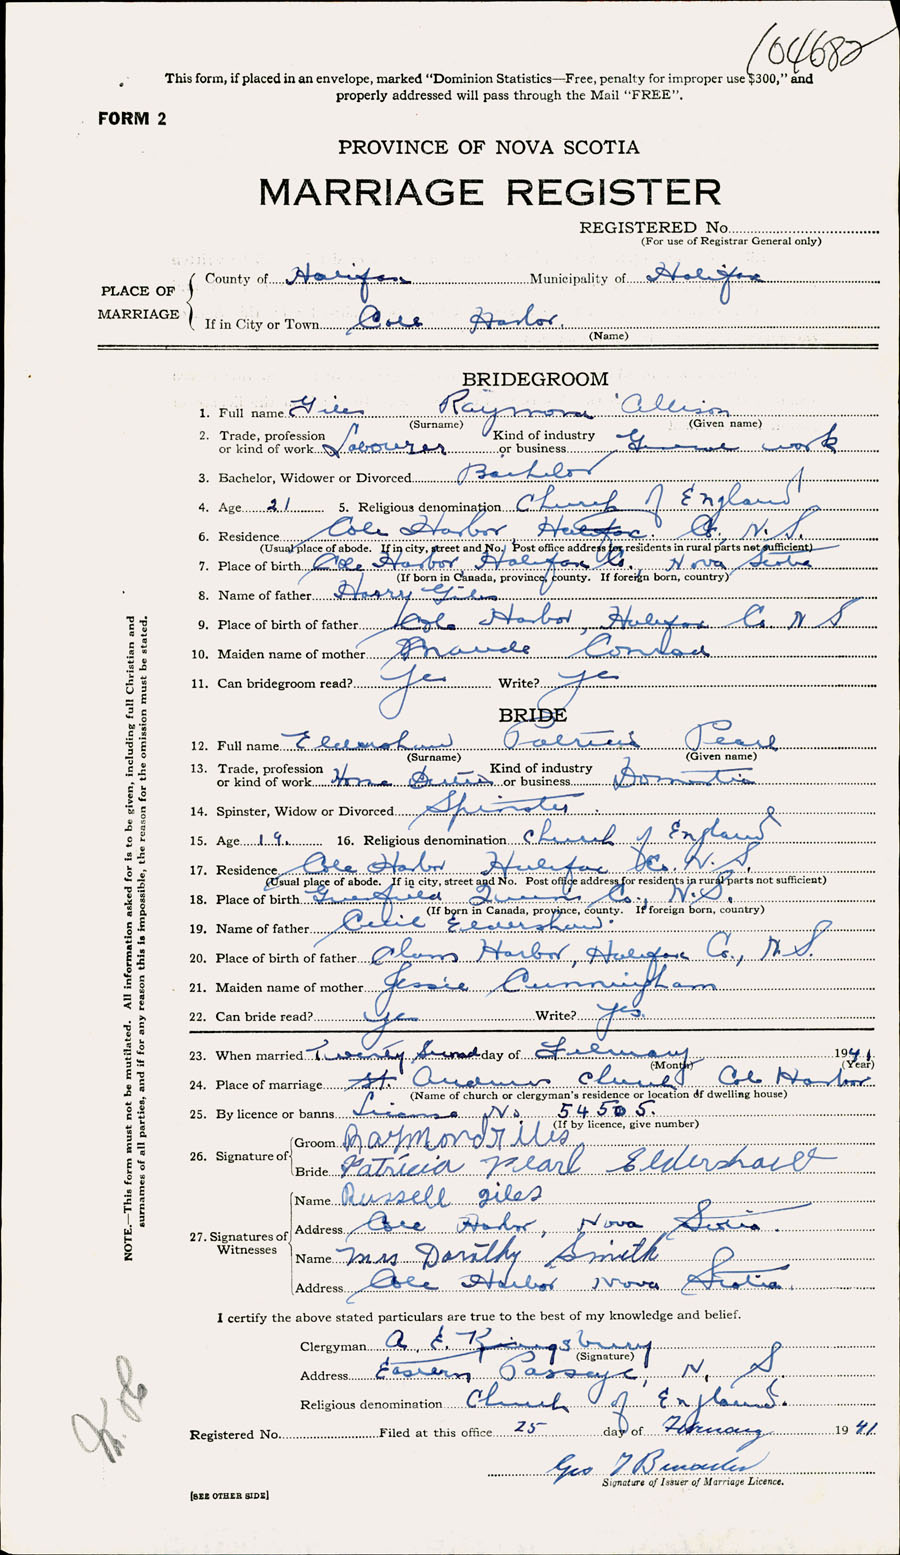 104682
This form, if placed in an envelope, marked “Dominion Statistics—Free, penalty for improper use $300,” and
properly addressed will pass through the Mail “FREE”.
FORM 2
PROVINCE OF NOVA SCOTIA
MARRIAGE REGISTER
REGISTERED No.
(For use of Registrar General only)
PLACE OF MARRIAGE
County of Halifax Municipality of Halifax
If in City or Town Cole Harbor.
(Name)
BRIDEGROOM
1. Full name Giles Raymond Allison
(Surname) (Given name)
2. Trade, profession or kind of work Labourer Kind of industry or business work
3. Bachelor, Widower or Divorced Bachelor
4. Age 21 5. Religious denomination Church of England
6. Residence Cole Harbor Halifax Co., N.S.
(Usual place of abode. If in city, street and No. Post office address for residents in rural parts not sufficient)
7. Place of birth Cole Harbor, Halifax Co., Nova Scotia
(If born in Canada, province, county. If foreign born, country)
8. Name of father Harry Giles
9. Place of birth of father Cole Harbor, Halifax Co. N S
10. Maiden name of mother Maude Conrad
11. Can bridegroom read? Yes Write? Yes
BRIDE
12. Full name Eldershaw Patricia Pearl
(Surname) (Given name)
13. Trade, profession or kind of work Home Duties Kind of industry or business Domestic
14. Spinster, Widow or Divorced Spinster
15. Age 19. 16. Religious denomination Church of England
17. Residence Cole Harbor Halifax Co. N.S.
(Usual place of abode. If in city, street and No. Post office address for residents in rural parts not sufficient)
18. Place of birth Greenfield Queens Co., N.S.
(If born in Canada, province, county. If foreign born, country)
19. Name of father Cecil Eldershaw.
20. Place of birth of father Clam Harbor, Halifax Co., N.S.
21. Maiden name of mother Jessie Cunningham
22. Can bride read? Yes Write? Yes.
23. When married Twenty Second day of February 1941.
(Month) (Year)
24. Place of marriage St. Andrews Church, Cole Harbor
(Name of church or clergyman's residence or location of dwelling house)
25. By licence or banns License No. 54505.
(If by licence, give number)
26. Signature of
Groom Raymond Giles
Bride Patricia Pearl Eldershaw
27. Signatures of Witnesses
Name Russell Giles
Address Cole Harbor, Nova Scotia.
Name Mrs Dorothy Smith
Address Cole Harbor Nova Scotia.
I certify the above stated particulars are true to the best of my knowledge and belief.
Clergyman A. E. Kingsbury
(Signature)
Address Eastern Passage, N. S.
Religious denomination Church of England.
Registered No. Filed at this office 25 day of February 1941.
Geo
Signature of Issuer of Marriage Licence.
[SEE OTHER SIDE]
NOTE.—This form must not be mutilated. All information asked for is to be given, including full Christian and
surnames of all parties, and if for any reason this is impossible, the reason for the omission must be stated.